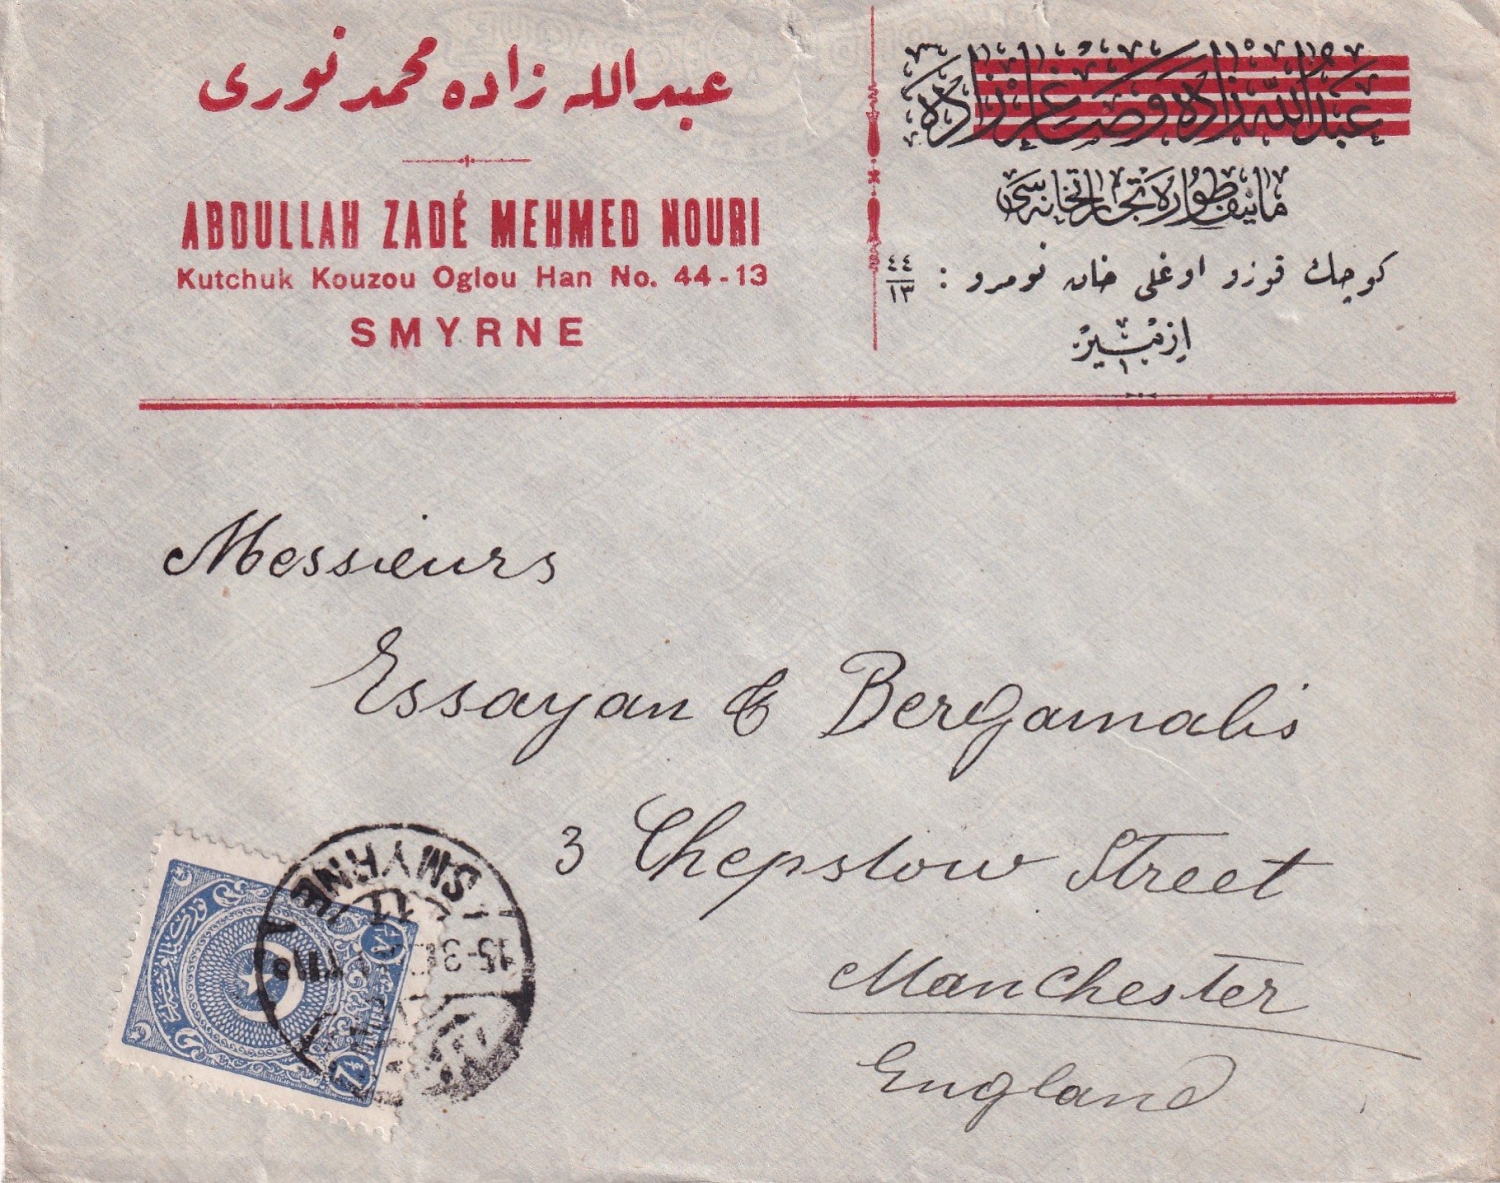 عبدالله زاده محمد نوری
ABDULLAH ZADÉ MEHMED NOURI
Kutchuk Kouzou Oglou Han No. 44-13
SMYRNE
عبدالله زاده و صاغر زاده
مانيفطوره تجارتخانه سی
كوچك قوزو اوغلی خان نومرو : ٤٤/١٣
ازمير
Messieurs
Essayan & Bergamalis
3 Chepstow Street
Manchester
England
SMYRNE
15-3
7½